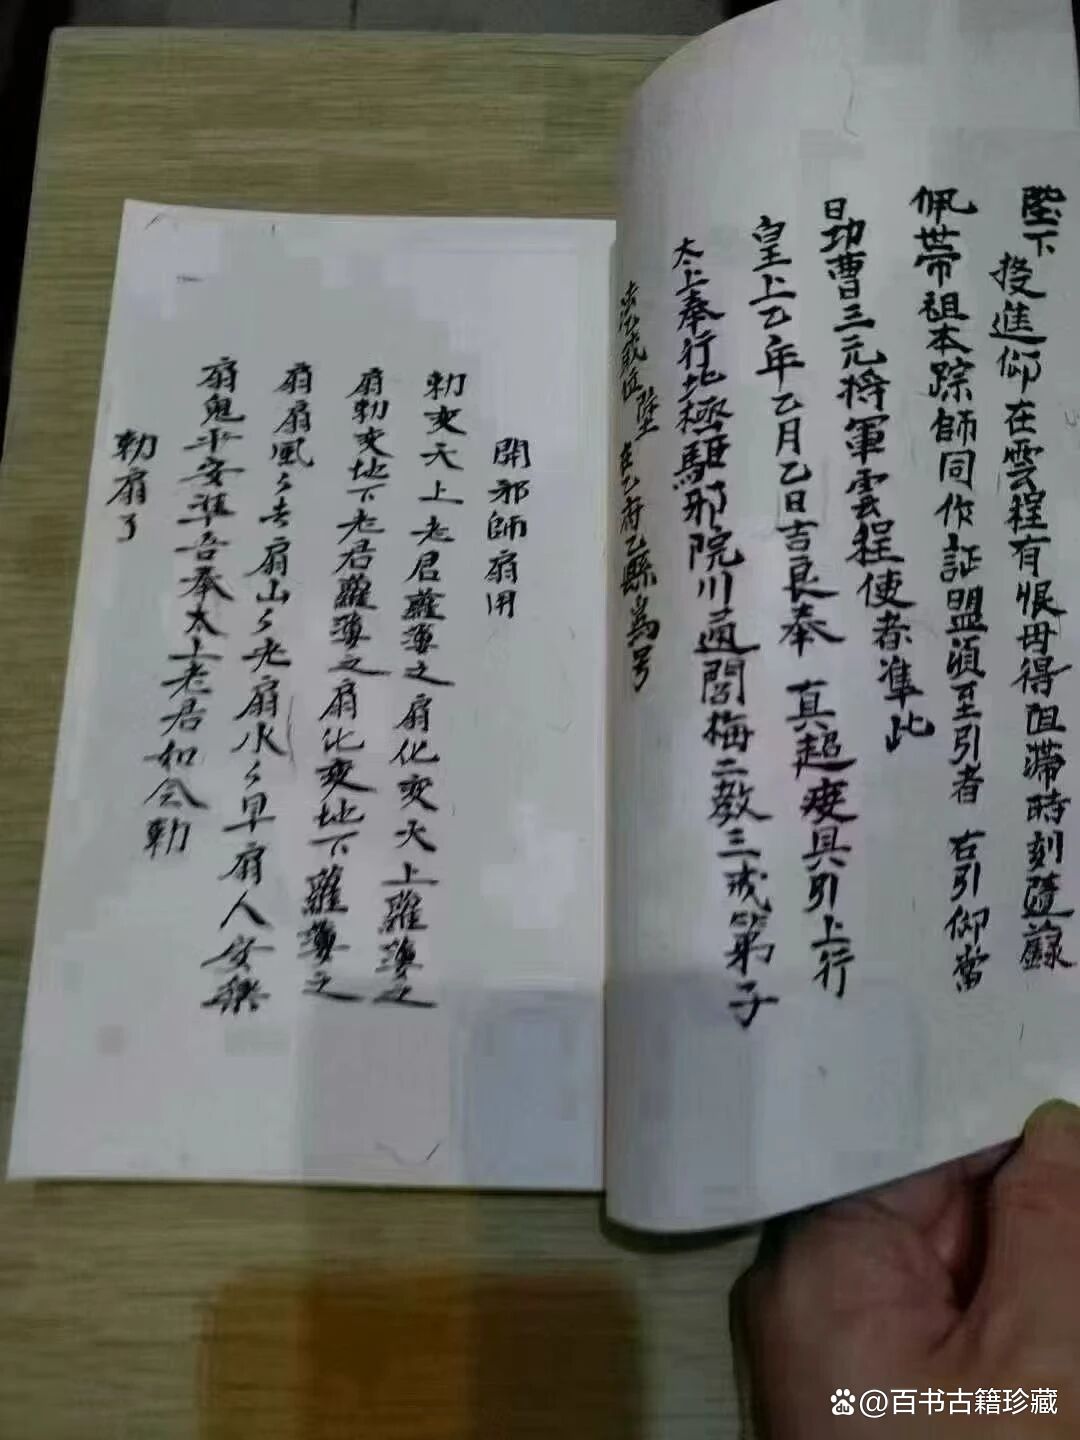 陛下
投進仰在雲程有恨毋得阻滯時刻隨錄
佩帶祖本踪師同作証盟須至引者 右引仰當
日功曹三元將軍雲程使者準此
皇上乙年乙月乙日吉良奉 真超度具引上行
太上奉行北極驅邪院川通閭梅二教三戒第子
法乙職位 陞 在乙府乙縣為号
開邪師扇用
勅变天上老君蘿薄之扇化变天上蘿薄之
扇勅变地下老君蘿薄之扇化变地下蘿薄之
扇扇風々去扇山々老扇水々早扇人安樂
扇鬼平安準吾奉太上老君如令勅
勅扇了
@百书古籍珍藏